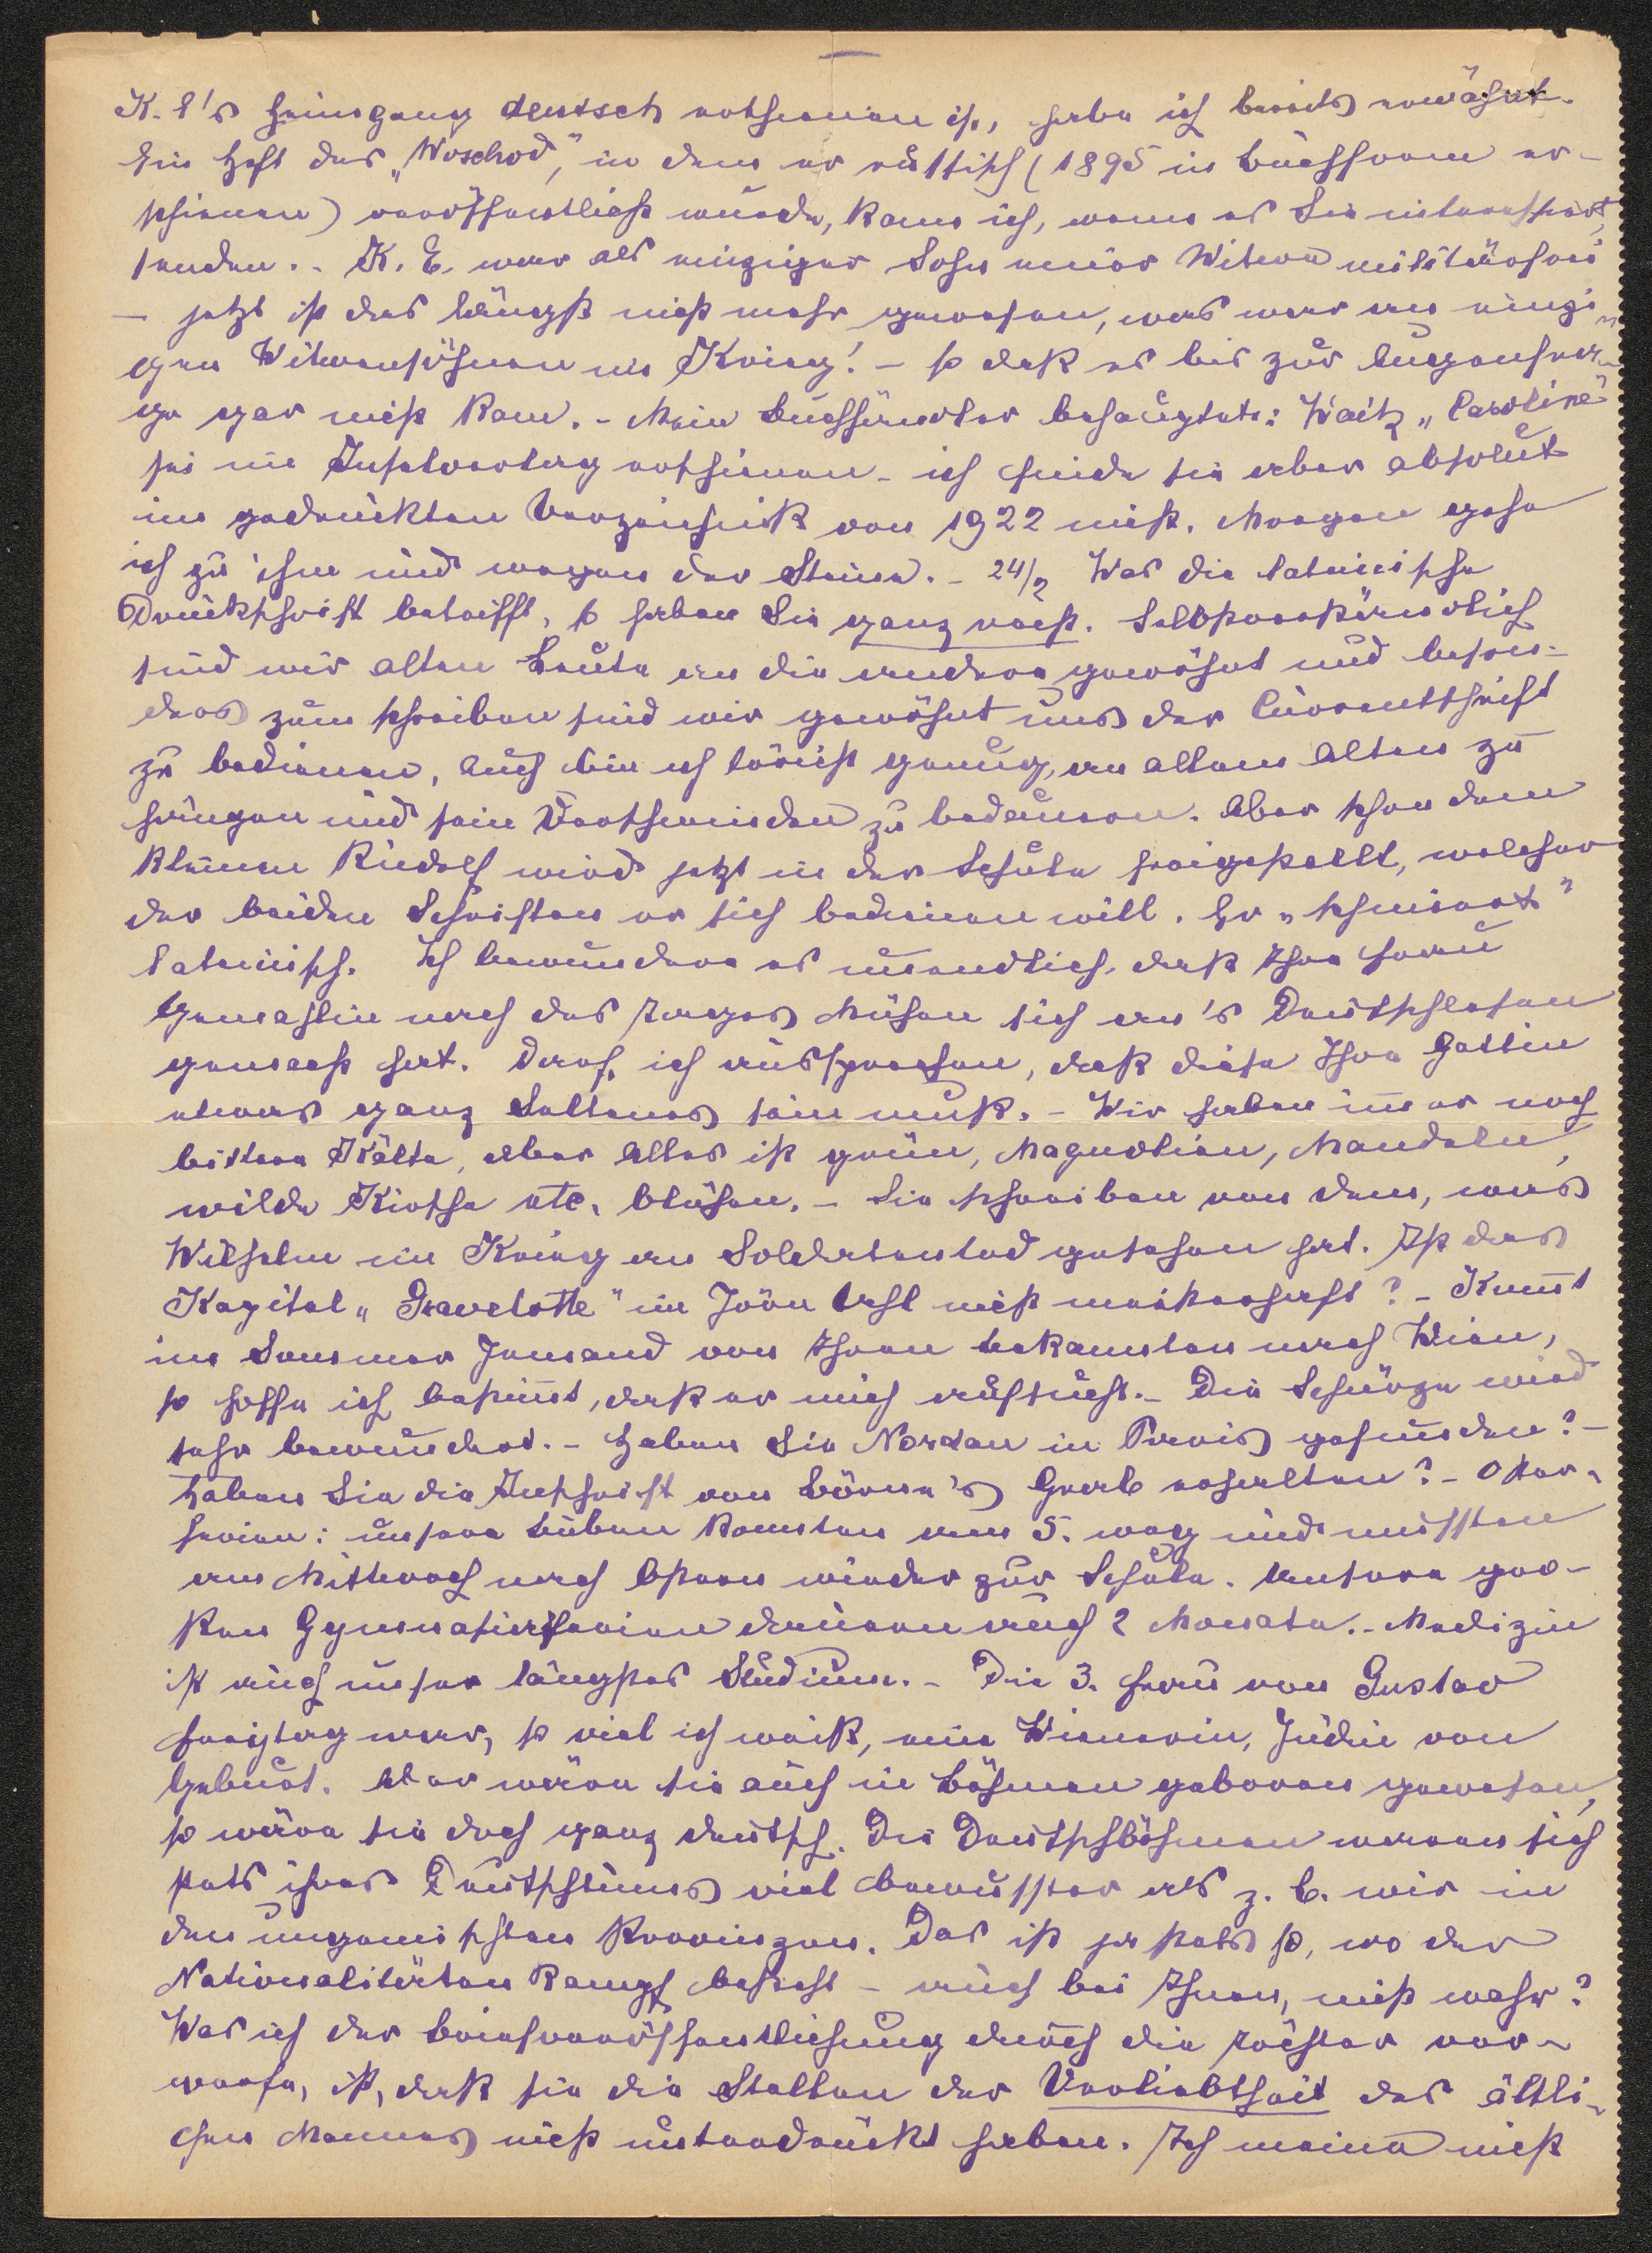 K. E's Heimgang deutsch erschienen ist, habe ich bereits erwähnt.
Ein Heft des „Woschod", in dem er russisch (1895 in Buchform er-
schienen) veröffentlicht wurde, kann ich, wenn es Sie interessiert,
senden. - K. E. war als einziger Sohn einer Witwe militärfrei
— jetzt ist das längst nicht mehr gewesen, was war an einzi-
gen Witwensöhnen im Krieg! - so daß es bis zur Augenfra-
ge gar nicht kam. - Mein Buchhändler behauptete: Waitz „Caroline"
sei im Inselverlag erschienen - ich finde sie aber absolut
im gedruckten Verzeichniß von 1922 nicht. Morgen gehe
ich zu ihm und wegen der Steuer. - 24/2 Was die lateinische
Druckschrift betrifft, so haben Sie ganz recht. Selbstverständlich
sind wir alten Leute an die andere gewöhnt und beson-
ders zum schreiben sind wir gewöhnt uns der Currentschrift
zu bedienen, auch bin ich töricht genug, an allem Alten zu
hängen und sein Verschwinden zu bedauern. Aber schon dem
kleinen Rudolf wird jetzt in der Schule freigestellt, welcher
der beiden Schriften er sich bedienen will. Er „schmiert"
lateinisch. Ich bewundere es unendlich, daß Ihre Frau
Gemahlin nach des Tages Mühen sich an's Deutschlesen
gemacht hat. Darf ich aussprechen, daß diese Ihre Gattin
etwas ganz Seltenes sein muß. - Wir haben immer noch
bittere Kälte, aber Alles ist grün, Magnolien, Mandeln,
wilde Kirsche etc. blühen. - Sie schreiben von dem, was
Wilhelm im Krieg an Soldatentod gesehen hat. Ist das
Kapitel „Gravelotte" im Jörn Uhl nicht meisterhaft? - Kommt
im Sommer Jemand von Ihren bekannten nach Wien,
so hoffe ich bestimmt, daß er mich aufsucht. - Die Schürze wird
sehr bewundert. - Haben Sie Nordau in Paris gefunden? -
Haben Sie die Inschrift von Börne's Grab erhalten? - Oster-
ferien: unsere Buben konnten am 5. weg und mussten
am Mittwoch nach Ostern wieder zur Schule. Unsere gro-
ßen Gymnasialferien dauern auch 2 Monate. - Medizin
ist auch unser längstes Studium. - Die 3. Frau von Gustav
Freytag war, so viel ich weiß, eine Wienerin, Jüdin von
Geburt. Aber wäre sie auch in Böhmen geboren gewesen,
so wäre sie doch ganz deutsch. Die Deutschböhmen waren sich
stets ihres Deutschtums viel bewusster als z. B. wir in
den ungemischten Provinzen. Das ist ja stets so, wo der
Nationalitäten Kampf besteht - auch bei Ihnen, nicht wahr?
Was ich der Briefveröffentlichung durch die Tochter vor-
werfe, ist, daß sie die Stellen der Verliebtheit des ältli-
chen Mannes nicht unterdrückt haben. Ich meine nicht